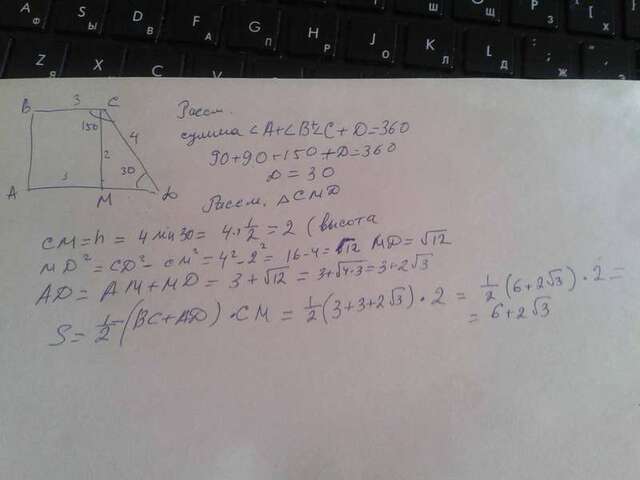 3
B C
150
4
2
3
30
A M D
Рассм.
сумма ∠A+∠B+∠C+D=360
90+90+150+D=360
D=30
Рассм. △CMD
CM=h= 4 sin 30= 4·1/2=2 (высота
MD²=CD²-CM²=4²-2²=16-4=12 MD=√12
AD=AM+MD=3+√12=3+√4·3=3+2√3
S=1/2(BC+AD)·CM=1/2(3+3+2√3)·2=1/2(6+2√3)·2=
=6+2√3